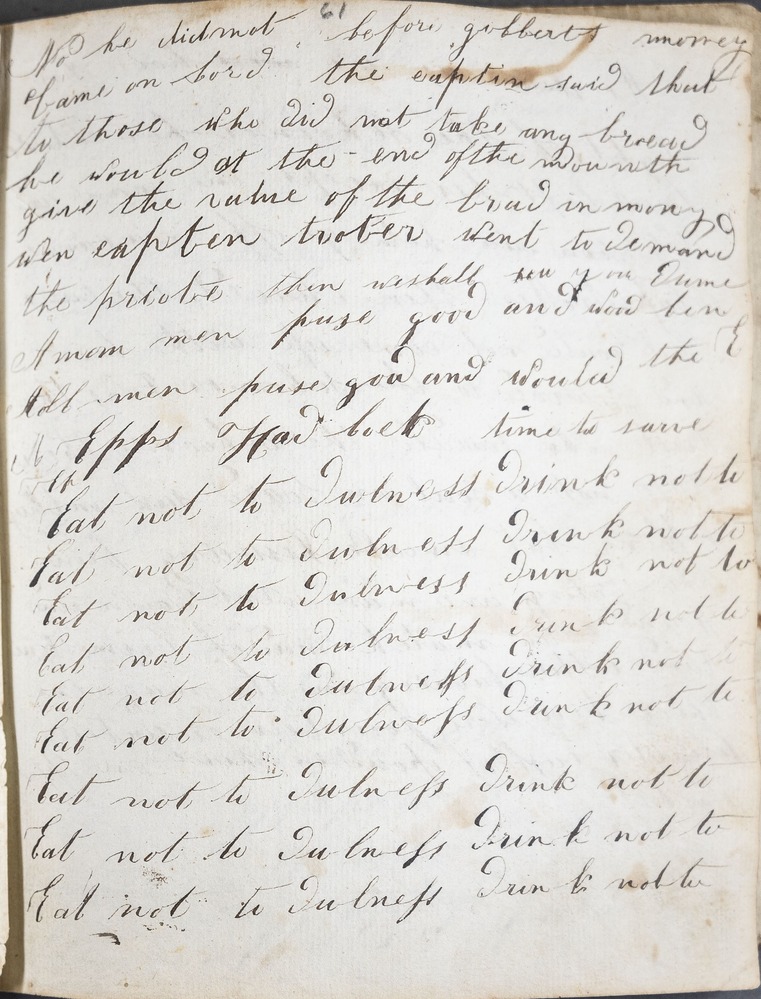 61
No he did not before gobberts mowney
Came on bord the captin said that
to those who did not take any bread
he would at the end of the mounth
give the value of the brad in mony
wen capten trober went to demand
the then weshall you
A mam men puse good and
Adl men puse god and would the E
Epps Had time to sarve
Eat not to Dulness Drink not to
Eat not to Dulness Drink not to
Eat not to Dulness Drink not to
Eat not to Dulness Drink not to
Eat not to Dulness Drink not to
Eat not to Dulness Drink not to
Eat not to Dulness Drink not to
Eat not to Dulness Drink not to
Eat not to Dulness Drink not to